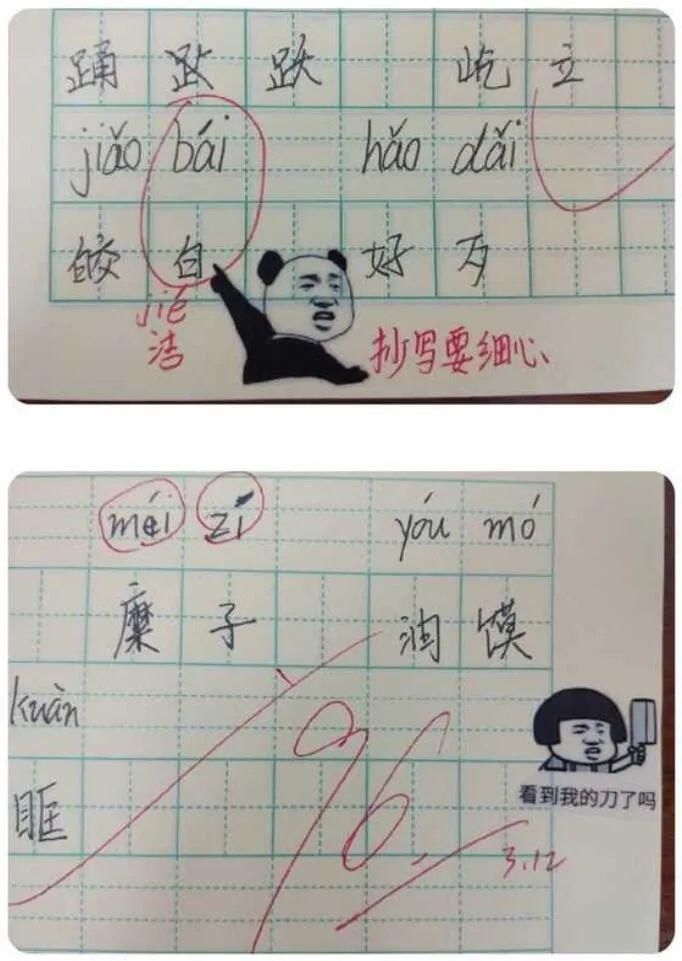 踊 跃 跌 屹 立
jiǎo bái hǎo dǎi
皎 白 好 歹
jié
洁
抄写要细心
méi zí yóu mó
糜 子 油 馍
kuàn
眶
96
3.12
看到我的刀了吗